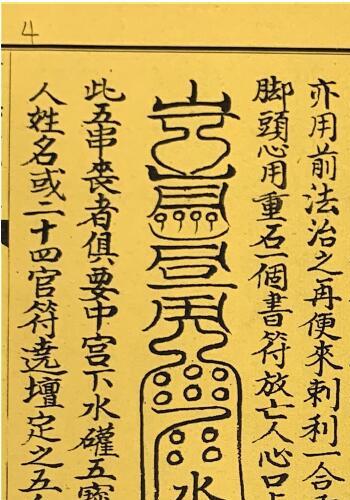 4
亦用前法治之再便來刺利一合
脚頭心用重石一個書符放亡人心口
水
此五串喪者俱要中宮下水礶五寶
人姓名或二十四官符遶壇定之五